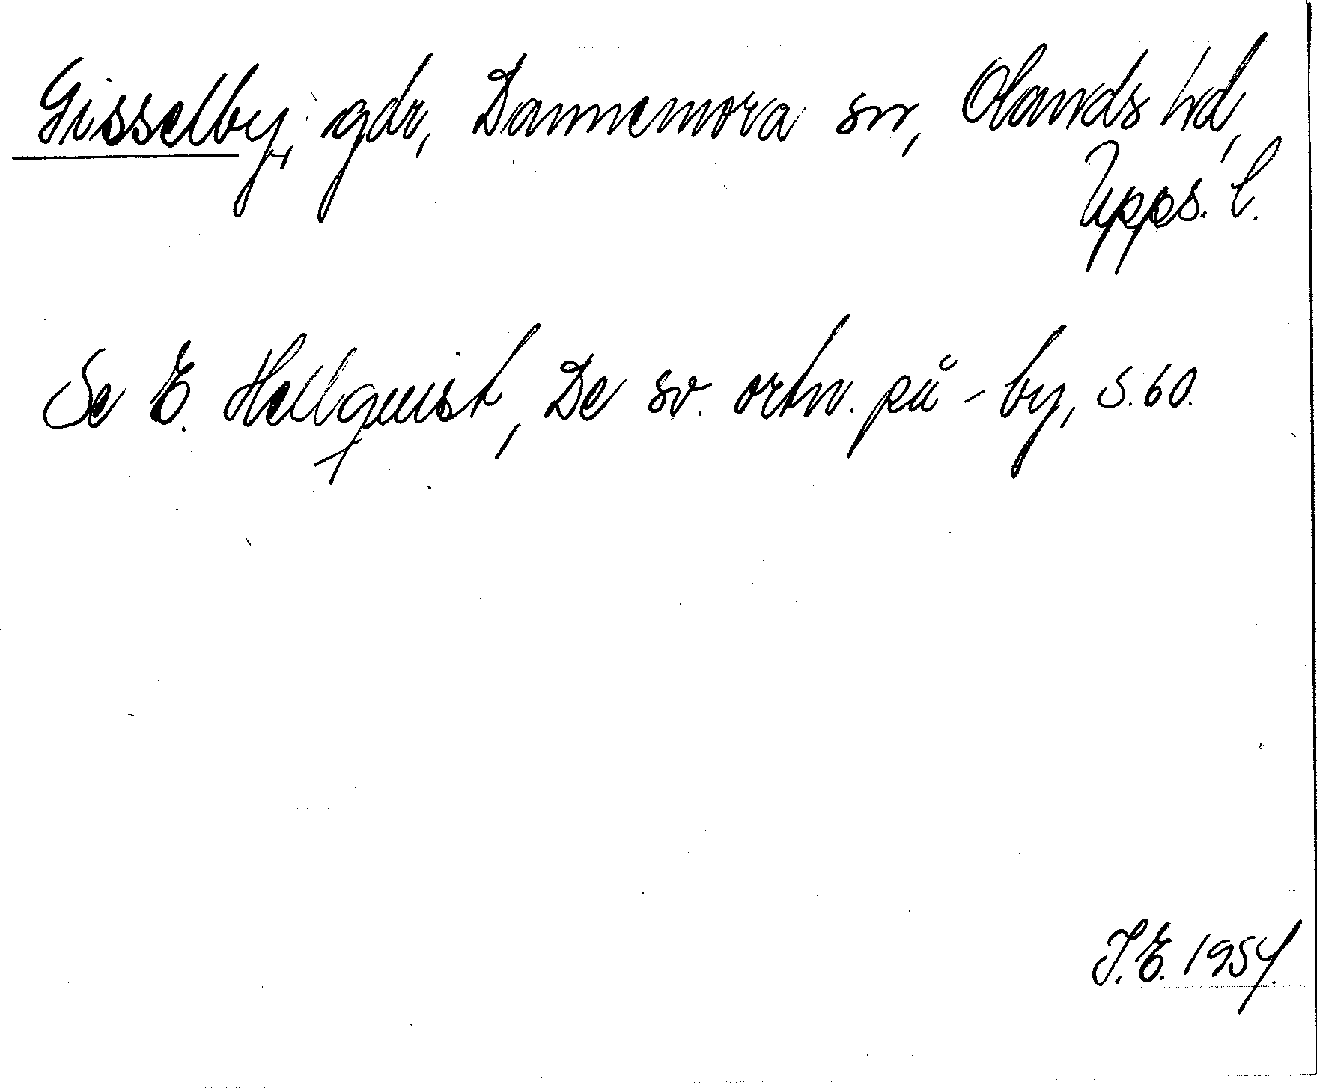 Gisselby, gdr, Dannemora sn, Olands hd,
Upps. l.
Se E. Hellquist, De sv. ortn. på -by, s. 60.
I.E. 1954.